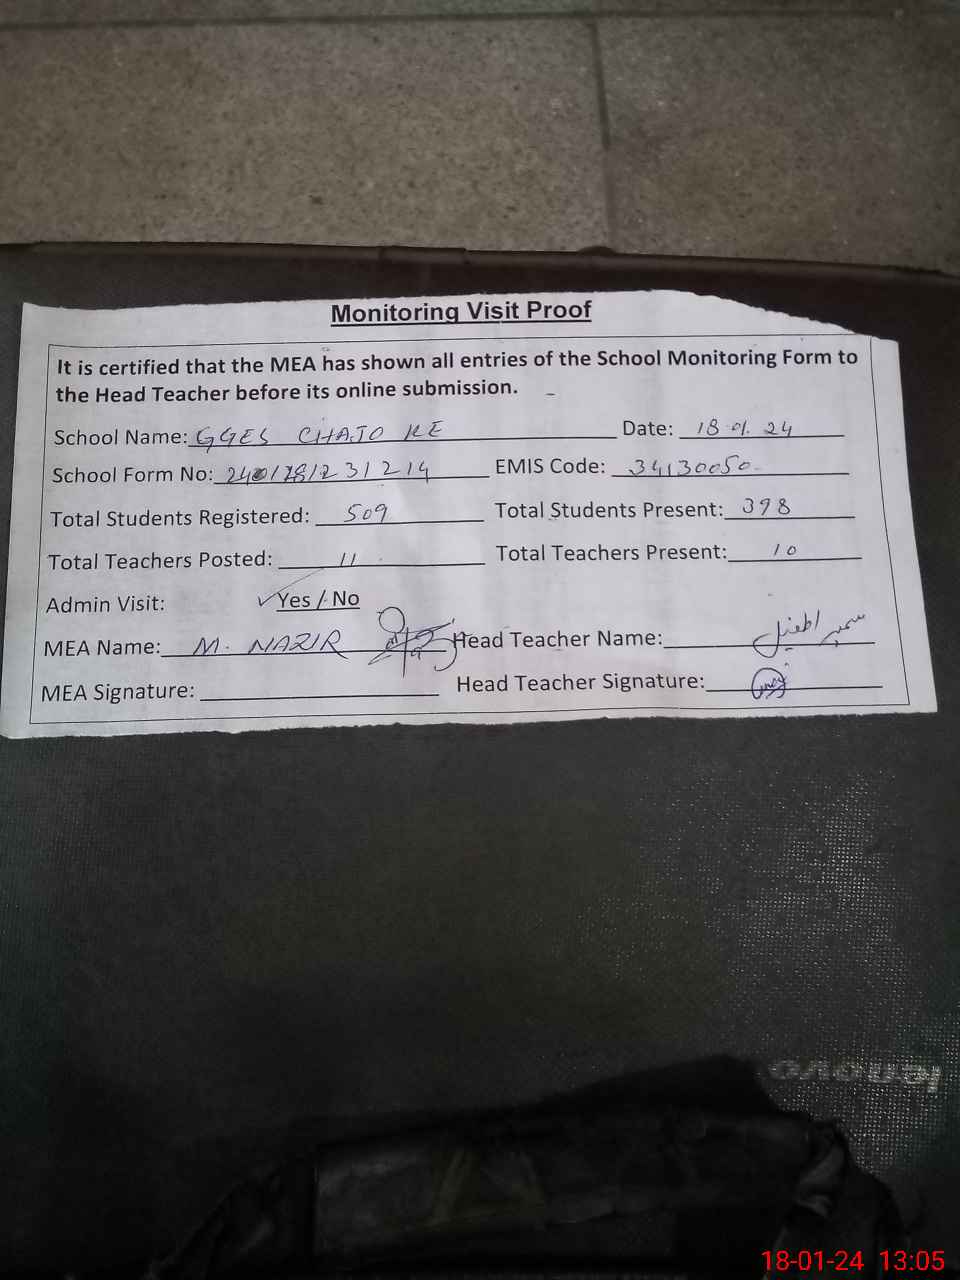 Monitoring Visit Proof
It is certified that the MEA has shown all entries of the School Monitoring Form to
the Head Teacher before its online submission.
School Name: GGES CHAJO KE Date: 18.01.24
School Form No: EMIS Code: 34130050
Total Students Registered: 509 Total Students Present: 398
Total Teachers Posted: 11 Total Teachers Present: 10
Admin Visit: ✓Yes / No
MEA Name: M. NAZIR Head Teacher Name:
MEA Signature: Head Teacher Signature:
lenovo
18-01-24 13:05